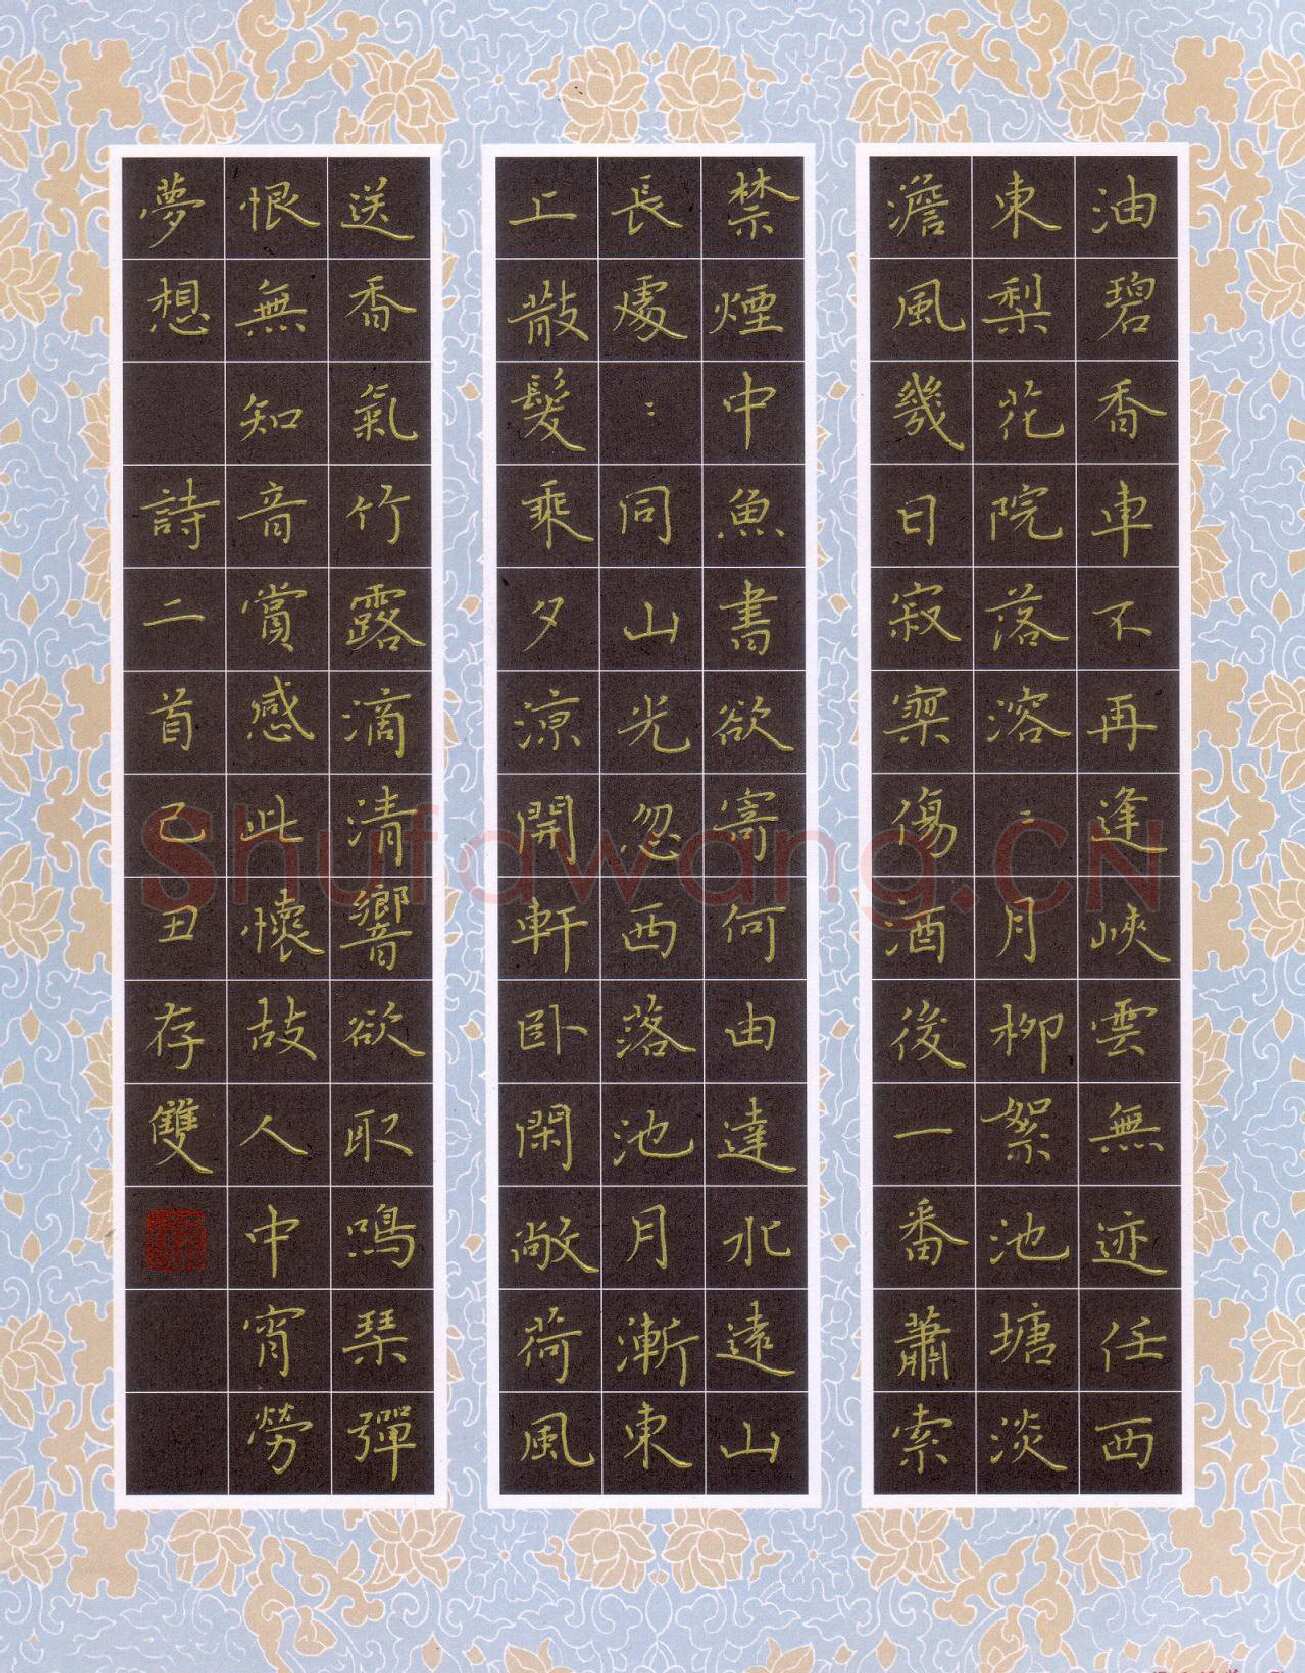 油碧香車不再逢峽雲無迹任西
東梨花院落溶:月柳絮池塘淡
澹風幾日寂寞傷酒後一番蕭索
禁煙中魚書欲寄何由達水遠山
長處:同山光忽西落池月漸東
上散髮乘夕涼開軒卧閑敞荷風
送香氣竹露滴清響欲取鳴琴彈
恨無知音賞感此懷故人中宵勞
夢想 詩二首己丑存雙
Shufawang.CN